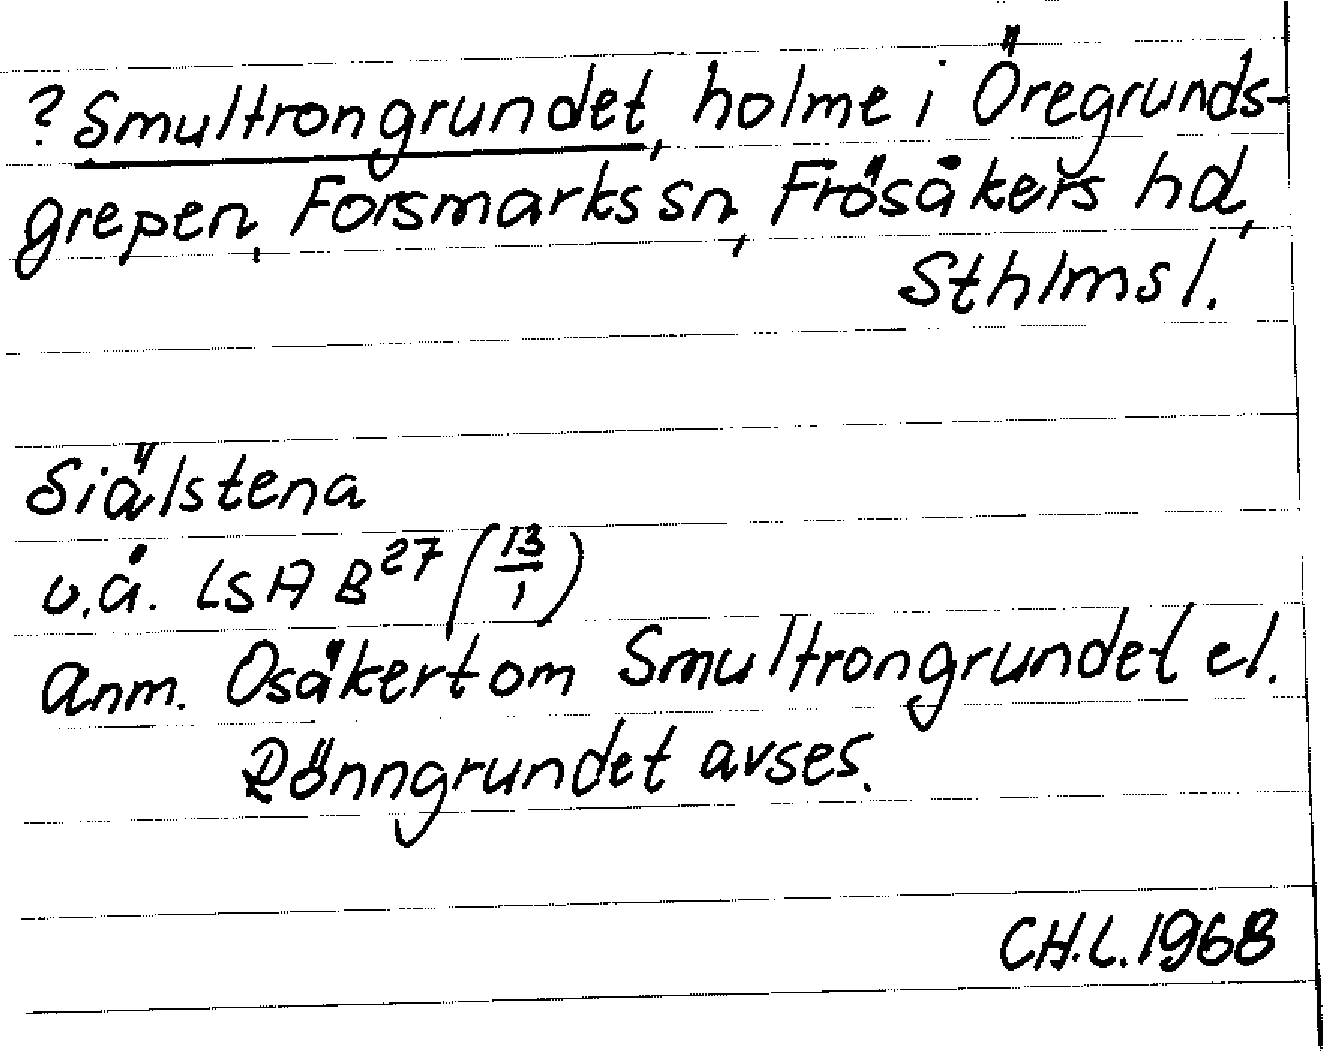 ? Smultrongrundet, holme i Öregrunds-
grepen, Forsmarks sn, Frösåkers hd,
Sthlms l.
Siälstena
u.å. LSA B27 (13/1)
Anm. Osäkert om Smultrongrundet el.
Rönngrundet avses.
CH.L. 1968